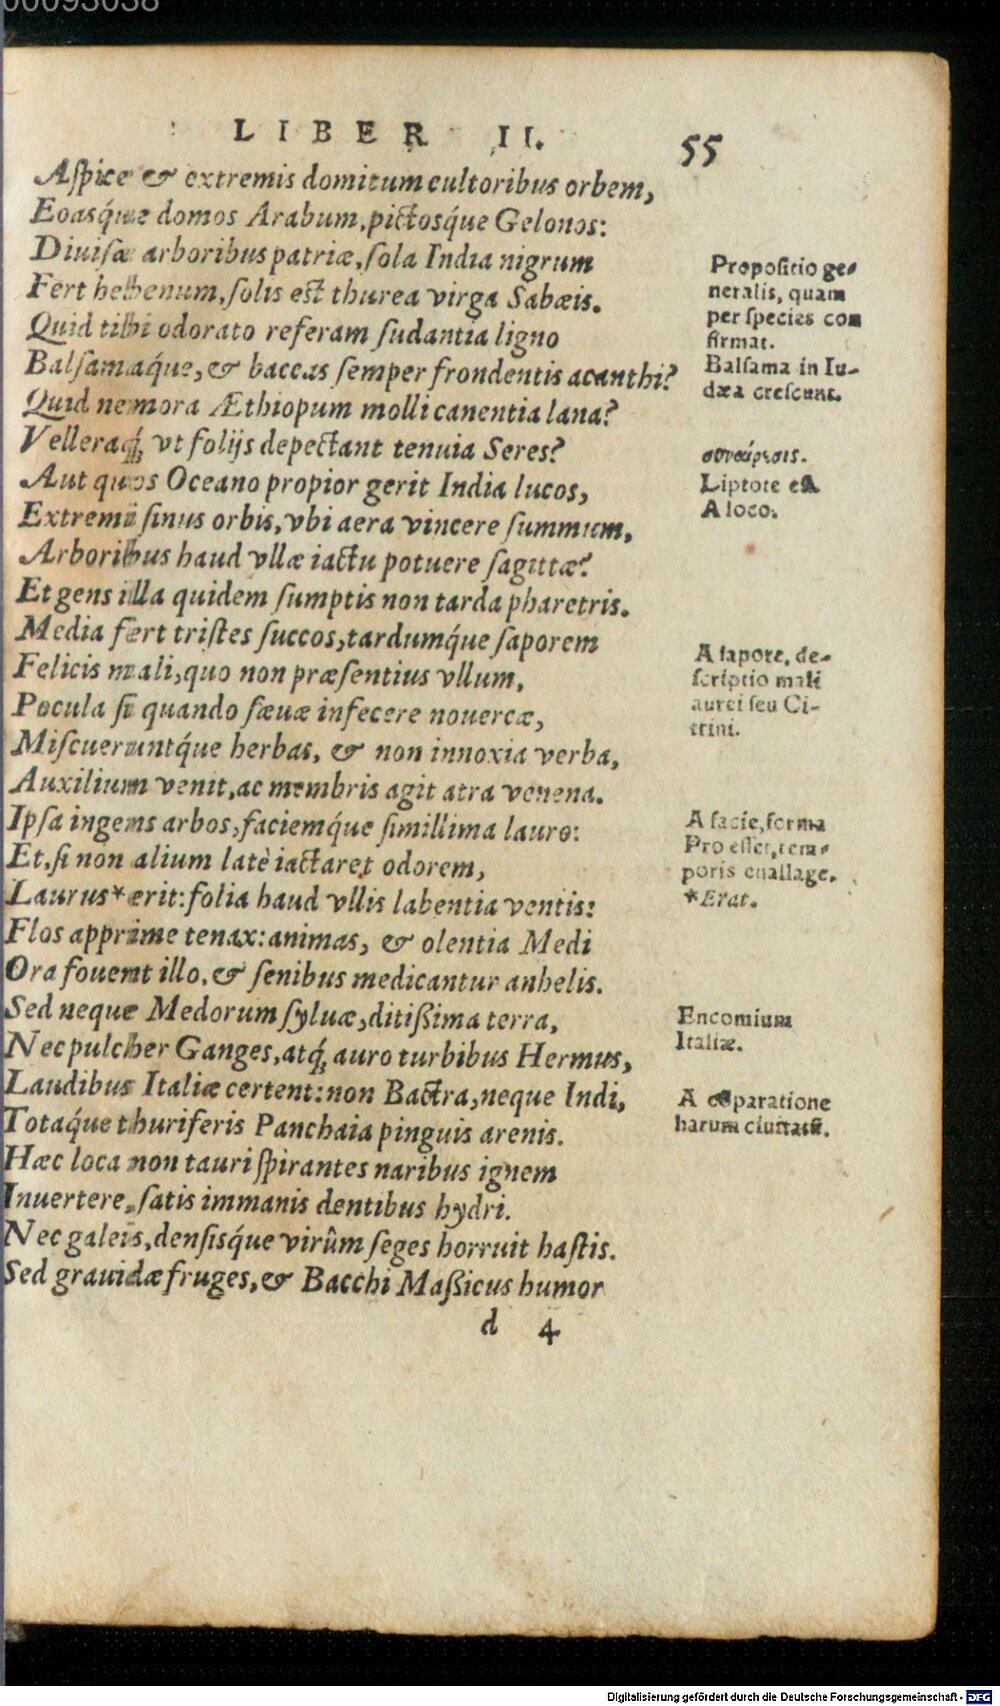 00093038
LIBER II. 55
Aſpice & extremis domitum cultoribus orbem,
Eoasq́ue domos Arabum, pictosq́ue Gelonos:
Diuiſæ arboribus patriæ, ſola India nigrum
Fert hebenum, ſolis est thurea virga Sabæis.
Quid tibi odorato referam ſudantia ligno
Balſamaq́ue, & baccas ſemper frondentis acanthi?
Quid nemora Æthiopum molli canentia lana?
Velleraq́; vt folijs depectant tenuia Seres?
Aut quos Oceano propior gerit India lucos,
Extremi ſinus orbis, vbi aera vincere ſummum,
Arboribus haud vllæ iactu potuere ſagittæ?
Et gens illa quidem ſumptis non tarda pharetris.
Media fert tristes ſuccos, tardumq́ue ſaporem
Felicis mali, quo non præſentius vllum,
Pocula ſi quando ſæuæ infecere nouercæ,
Miſcueruntq́ue herbas, & non innoxia verba,
Auxilium venit, ac membris agit atra venena.
Ipſa ingens arbos, faciemq́ue ſimillima lauro:
Et, ſi non alium latè iactaret odorem,
Laurus* erit: folia haud vllis labentia ventis:
Flos apprime tenax: animas, & olentia Medi
Ora fouent illo, & ſenibus medicantur anhelis.
Sed neque Medorum ſyluæ, ditißima terra,
Nec pulcher Ganges, atq́; auro turbibus Hermus,
Laudibus Italiæ certent: non Bactra, neque Indi,
Totaq́ue thuriferis Panchaia pinguis arenis.
Hæc loca non tauri ſpirantes naribus ignem
Inuertere, ſatis immanis dentibus hydri.
Nec galeis, densisq́ue virûm ſeges horruit haſtis.
Sed grauidæ fruges, & Bacchi Maßicus humor
d 4
Propoſitio ge-
neralis, quam
per ſpecies con
firmat.
Balſama in Iu-
dæa creſcunt.
Liptote est
A loco.
A ſapore, de-
ſcriptio mali
aurei ſeu Ci-
trini.
A facie, forma
Pro eſſet, tem-
poris enallage.
*Erat.
Encomium
Italiæ.
A cõparatione
harum
Digitalisierung gefördert durch die Deutsche Forschungsgemeinschaft - DFG